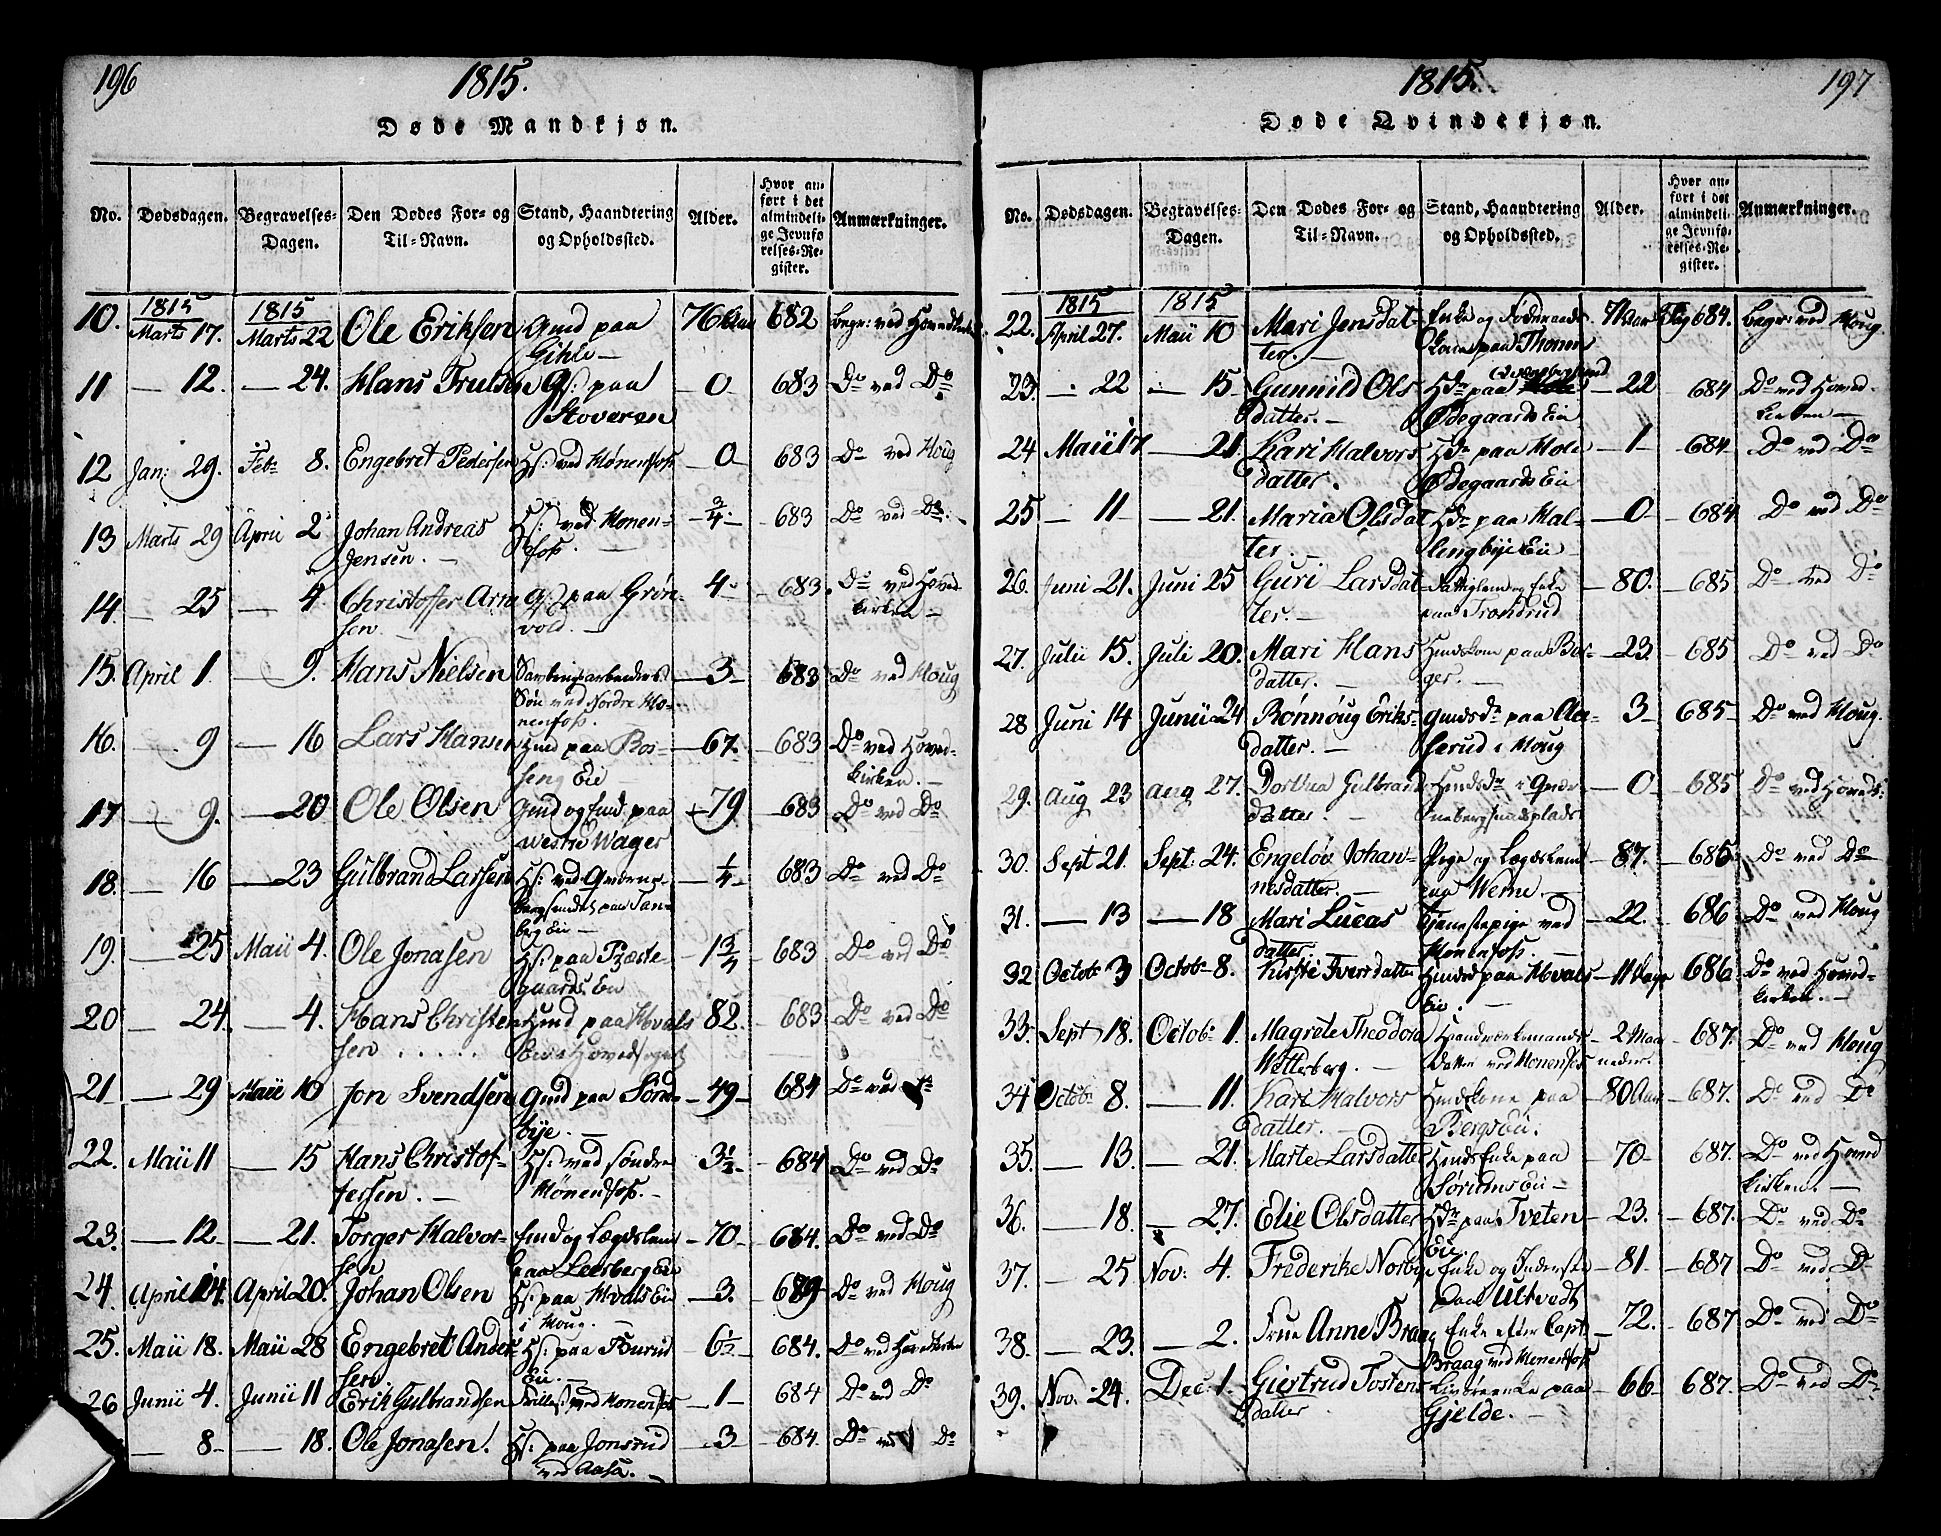 196
1815.
Døde Mandkjøn.
No. Dødsdagen. Begravelses-Dagen. Den Dødes For- og Til-Navn. Stand, Haandtering og Opholdssted. Alder. Hvor anført i det almindelige Jevnførelses-Register. Anmærkninger.
1815 1815
10. Marts 17. Marts 22 Ole Eriksen Gmd paa Gihle 76 682 begr: ved
11 — 12. — 24. Hans Trulsen G: S: paa Stoveren 0 683 Do ved Do
12 Jan: 29. Feb 8. Engebret Pedersen H: S: ved Hønenfos 0 683 Do ved Houg
13 Marts 29 April 2 Johan Andreas Jensen. H: S: ved Honenfos. 3/4 683 Do ved Do
14. — 25 — 4. Christoffer Arnesen G: S: paa Grønvold. 4 683 Do ved Hovedkirken
15. April 1. — 9. Hans Nielsen Søn ved Nordre Honenfos. 3 683 Do ved Houg
16. — 9 — 16 Lars Hansen Hmd paa Eie 67. 683 Do ved Hovedkirken.
17 — 9. — 20 Ole Olsen Gmd og paa Westre Wager 79 683 Do ved Do
18. — 16 — 23 Gulbrand Larsen H: S: ved Eie 1/4 683 Do ved Do
19. — 25 Maii 4. Ole Jonasen H: S: paa Præsteguards Eie 683 Do ved Do
20 — 24. — 4. Hans Christensen Hmd paa Hvals Eie i Hovedsognet 82. 683 Do ved Do
21 — 29 Maii 10 Jon Svendsen Gmd paa Søndbye. 49 684 Do ved Do
22. Maii 11 — 15 Hans Christoffersen. H: S: ved søndre Hønenfos. 3 1/2 684 Do ved Do
23. — 12 — 21. Torger Halvorsen og Lægdslem paa Leerberg Eie 70 684. Do ved Do
24. April 14. April 20. Johan Olsen H: S: paa Hvals Eie i Houg. 3. 684 Do ved Houg
25. Maii 18. Maii 28 Engebret Andersen. H: S: paa Eie. 6 1/2 684. Do ved
26 Junii 4. Junii 11 Erik Gulbrandsen ved Honenfos 1 684 Do ved Do
— 8 — 18. Ole Jonasen. H: S: paa Jonsrud ved Aasa. 3 684. Do ved Do
197
1815.
Døde Qvindekjøn.
No. Dødsdagen. Begravelses-Dagen. Den Dødes For- og Til-Navn. Stand, Haandtering og Opholdssted. Alder. Hvor anført i det almindelige Jevnførelses-Register. Anmærkninger.
1815 1815
22. April 27. Maii 10 Mari Jensdatter. Enke og Kone paa Thoren 684. begr: ved Houg.
23. — 22 — 15. Gunnild Olsdatter. Hdr paa Ødegaards Eie 22 684 Do ved Hovedkirken
24 Maii 17 — 21. Kari Halvorsdatter. Hdr paa Hole Ødegaards Eie 1 684 Do ved Do
25 — 11 — 21. Maria Olsdatter. Hdr paa Hallingbye Eie 0 684 Do ved Do
26. Juni 21. Juni 25 Guri Larsdatter. Fattiglem og Enke paa Trondrud 80. 685 Do ved Do
27. Julii 15. Juli 20. Mari Hansdatter. Hmdskone paa Borger. 23. 685 Do ved Do
28 Juni 14 Junii 24 Rønnoug Eriksdatter. Gmdsdr paa i Houg 3 685 Do ved Houg.
29. Aug 23 Aug 27. Dorthea Gulbrandsdatter. Hmdsdr i 0 685 Do ved Hoveds:
30. Sept 21. Sept: 24. Engeløv Johannesdatter. Pige og Lægdslem paa Weme. 87. 685 Do ved Do
31. — 13 — 18 Mari Lucasdatter Tjenestepige ved Honenfos. 22. 686 Do ved Houg
32 Octobr 3 Octobr 8. Kirsti Iversdatter Hmdsd paa Hvals Eie. 11 Dage 686 Do ved Hovedkirken.
33. Sept 18. Octobr 1. Magrete Theodora Wetterberg. Haandværksmands Datter ved Honenfos 2 Maaneder. 687. Do ved Houg
34 Octobr 8. — 11. Kari Halvorsdatter. Hmdskone paa Bergsøu. 80 Aar 687. Do ved Do
35. — 13. — 21. Marte Larsdatter Hmds Enke paa Sørums Eie 70 687. Do ved Hovedkirken.
36. — 18. — 27. Elie Olsdatter Hdr paa Tveten Eie. 23. 687. Do ved Do
37. — 25 Nov: 4. Frederike Norbye Enke og Inderste paa Ultvedt 81 687 Do ved Do
38. — 23. — 2. Frue Anne Braag Enke efter Capt: Braag ved Honenfos 72. 687 Do ved Do
39. Nov: 24. Dec: 1. Giertrud Tostensdatter paa Gjelde. 66 687. Do ved Do